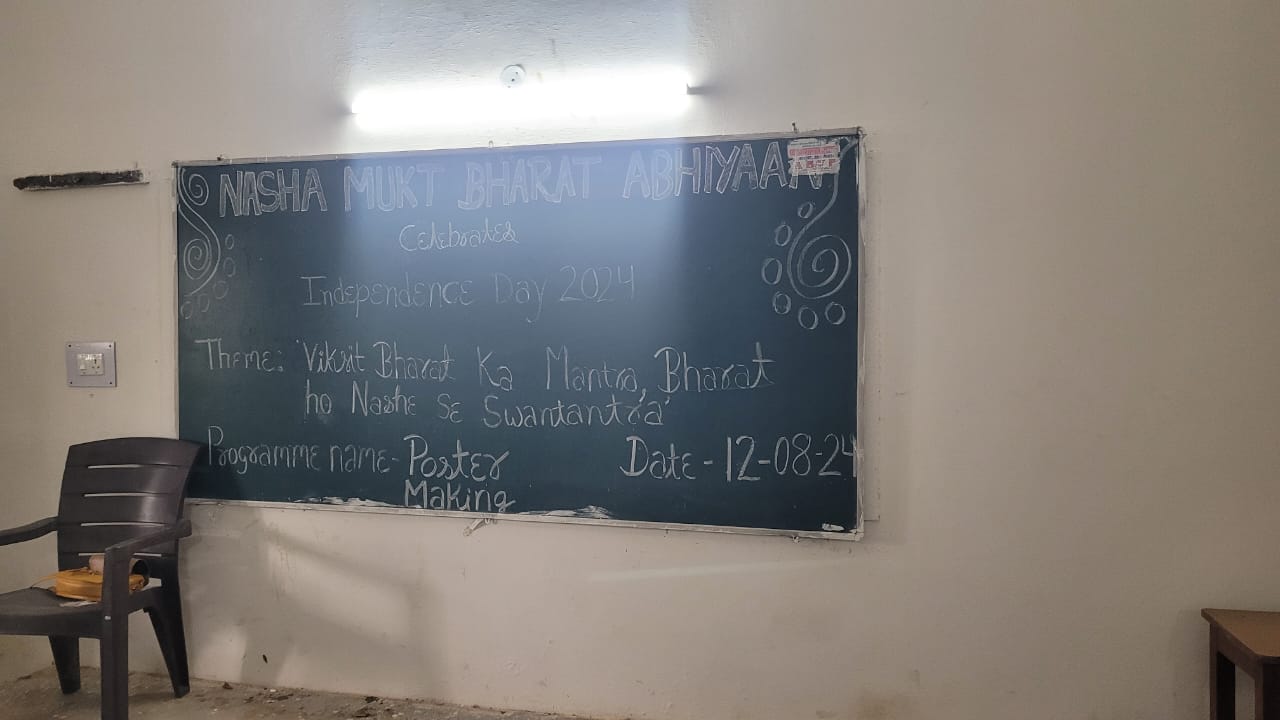 NASHA MUKT BHARAT ABHIYAAN
Celebrates
Independence Day 2024
Theme: 'Viksit Bharat Ka Mantra, Bharat
ho Nashe Se Swantantra'
Programme name- Poster
Making
Date - 12-08-24